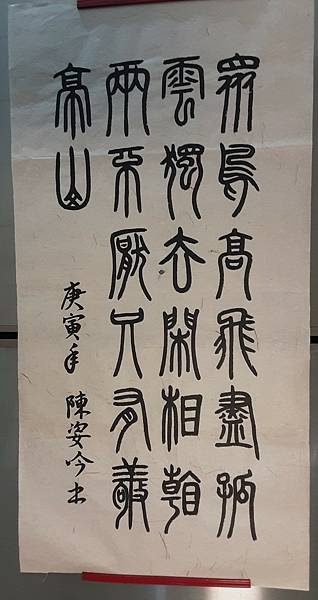 眾鳥高飛盡孤
雲獨去閑相看
兩不厭只有敬
亭山
庚寅年 陳姿吟書